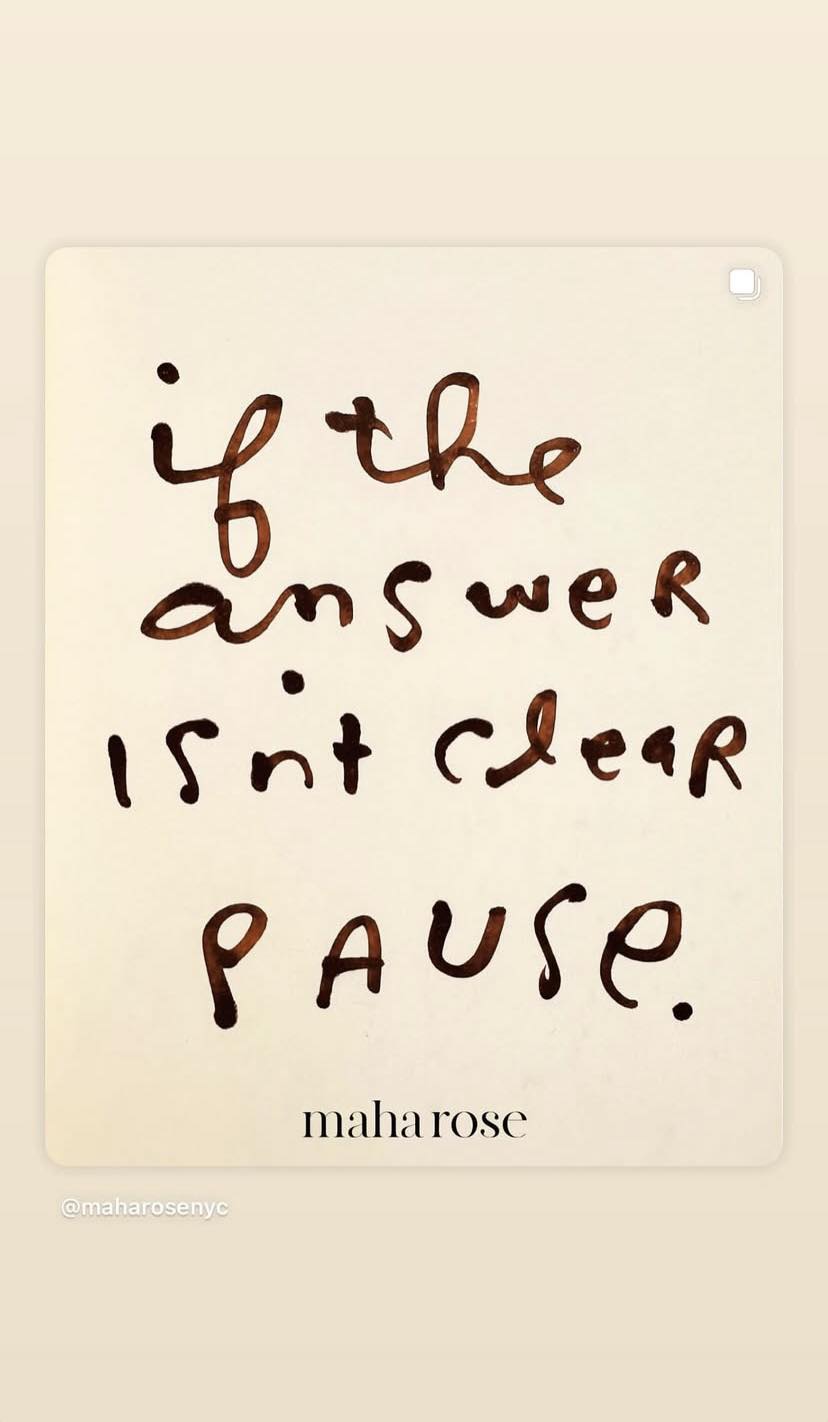 if the
answer
isn't clear
PAUSe.
maha rose
@maharosenyc